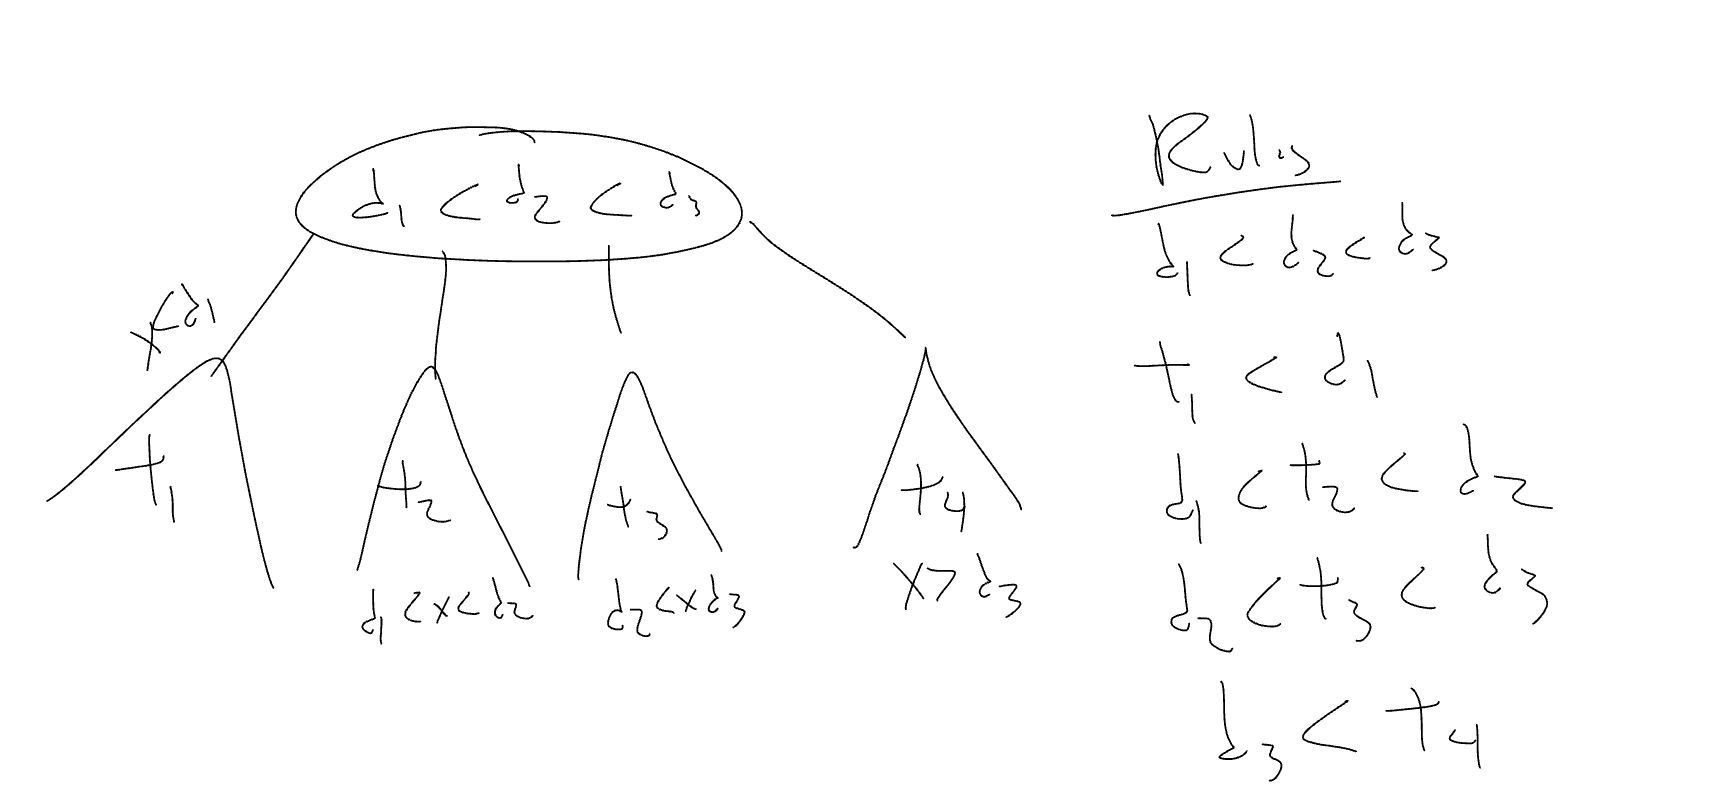 d1 < d2 < d3
x<d1
t1
t2
t3
t4
d1<x<d2
d2<xd3
x>d3
Rules
d1 < d2 < d3
t1 < d1
d1 < t2 < d2
d2 < t3 < d3
d3 < t4